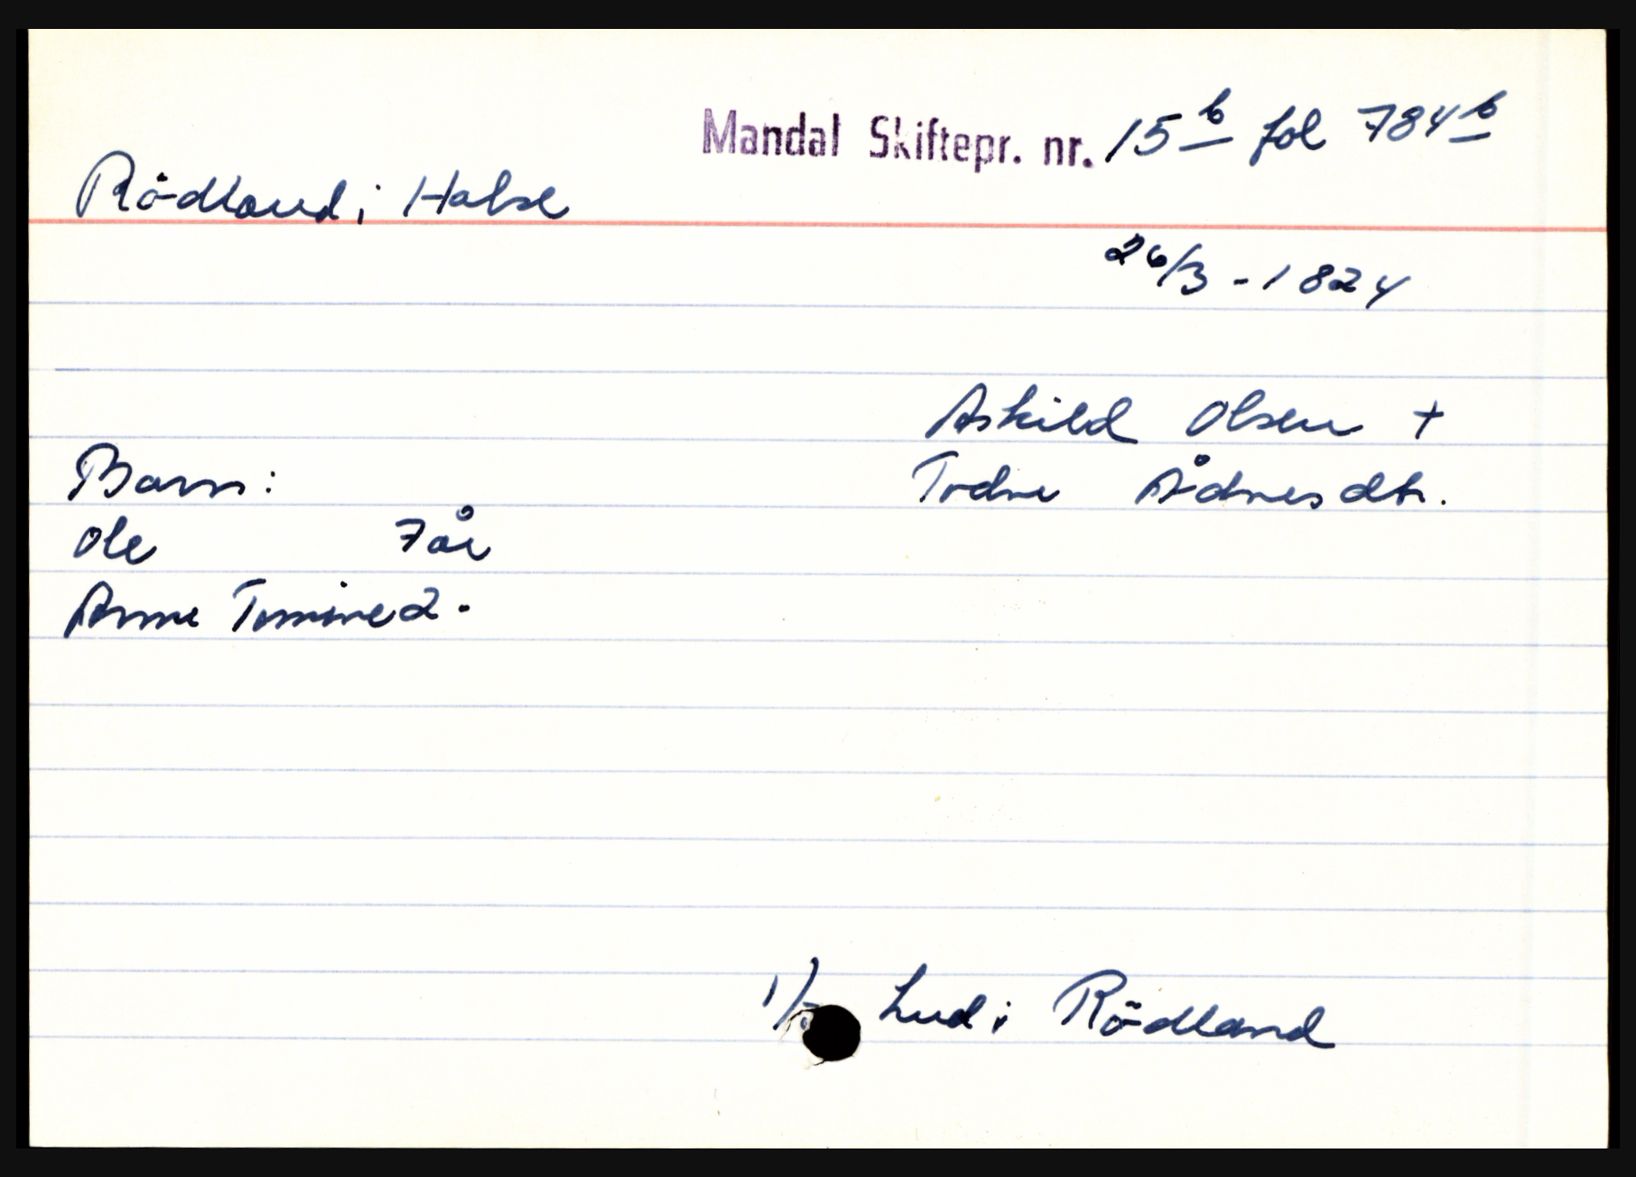 Mandal Skiftepr. nr. 15 b fol 784 b
Rödland i Halse
26/3 - 1824
Askild Olsen +
Todne Ådnesdtr.
Barn:
Ole 7 år
Anne Tomine 2 -
Hud i Rödland